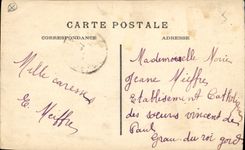 CARTE POSTALE
CORRESPONDANCE
ADRESSE
Mille caresses
E. Meiffre
Mademoiselle Marie
Jeanne Meiffre
Etablisement Catholi
des sœurs vincent de
Paul
Grau du roi gard